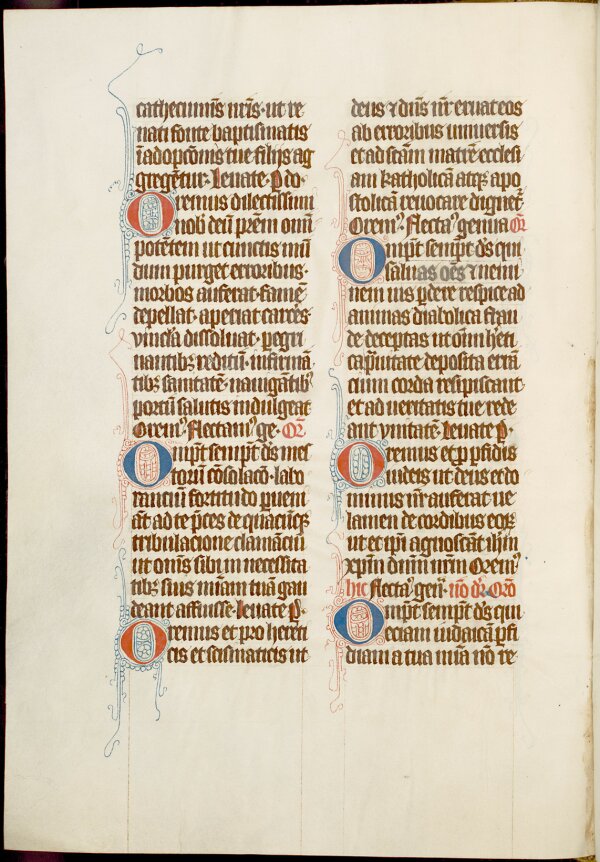 cathecumīs nr̄is · ut re
nati fonte baptismatis
ī adopcōnis tue filijs ag
gregētur · Leuate · P do ·
Oremus dilectissimi
nob̄ deū prēm omī
potētem ut cunctis mū
dum purget erroribus ·
morbos auferat · famē
depellat · aperiat carces
vincla dissoluat · pegri
nantibꝫ reditū · infirmā
tibꝫ sanitatē · nauigātibꝫ
portū salutis indulgeat
Orem⁹ · flectam⁹ ge · Or̄
Omīpt̄ sempit̄ ds̄ mes
torū cōsolacō · labo
rantiū fortitudo pueni
āt ad te p̄ces de quacūqꝫ
tribulacione clamāciū
ut om̄s sibi in necessita
tibꝫ suis mīam tuā gau
deant affuisse · Leuate P ·
Oremus et pro hereti
cis et scismaticis ut
deus ⁊ dn̄s nr̄ eruat eos
ab erroribus uniuersis
et ad scām matrē ecclesi
am katholicā atqꝫ apo
stolicā reuocare dignet᷑
Orem⁹ · flecta⁹ genua Or̄
Omīpt̄ sempit̄ ds̄ qui
saluas om̄s ⁊ nemi
nem uis p̱dere respice ad
animas diabolica frau
de deceptas ut om̄i heti
ca p̄uitate deposita errā
cium corda resipiscant
et ad ueritatis tue rede
ant vnitatē Leuate P ·
Oremus et p̱ p̱fidis
iudeis ut deus et do
minus nr̄ auferat ue
lamen de cordibus eoꝝ
ut et ip̄i agnoscāt ih̄m
xp̄m dn̄m nr̄m Orem⁹
hic flecta⁹ gen̄ · nō dr̄ · Orō
Omīpt̄ sempit̄ ds̄ qui
eciam iudaicā p̱fi
diam a tua mīa nō re